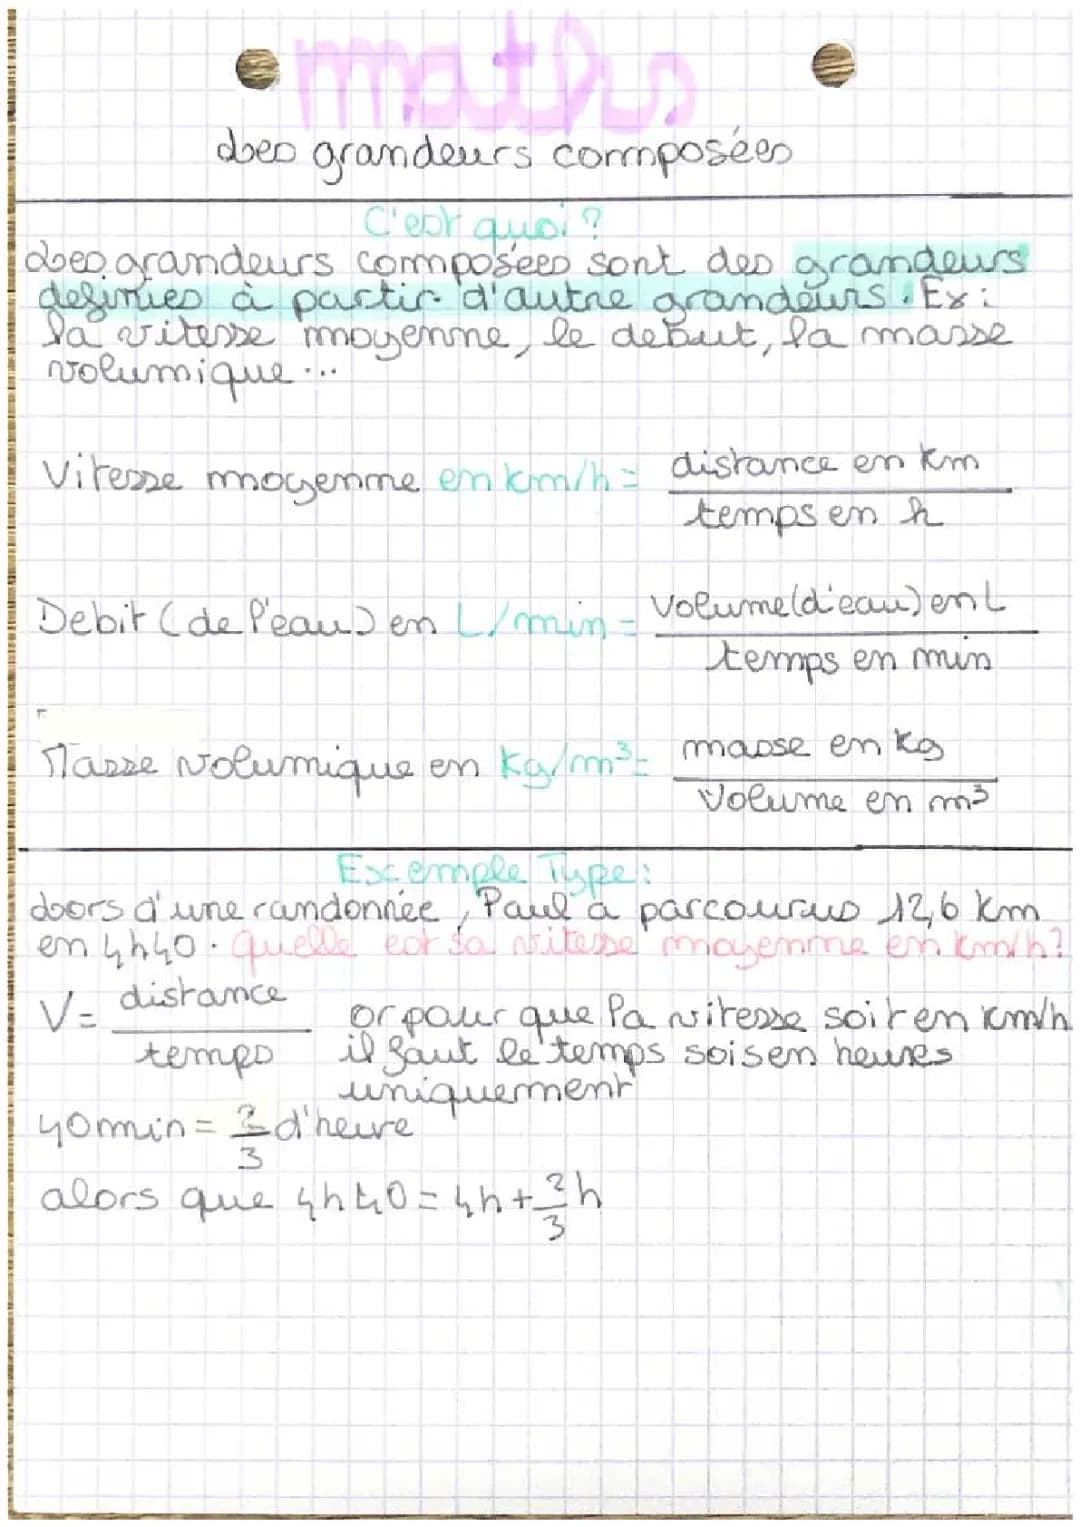 maths
Les grandeurs composées
C'est quoi ?
Les grandeurs composées sont des grandeurs
definies à partir d'autre grandeurs. Ex :
la vitesse moyenne, le debut, la masse
volumique...
Vitesse moyenne en km/h = distance en km
temps en h
Debit (de l'eau) en L/min = Volume (d'eau) en L
temps en min
Masse volumique en kg/m³ = masse en kg
Volume en m³
Exemple Type :
Lors d'une randonnée, Paul a parcourus 12,6 km
en 4h40. Quelle est sa vitesse moyenne en km/h ?
V = distance
temps
or pour que la vitesse soit en km/h
il faut le temps sois en heures
uniquement
40 min = 2/3 d'heure
alors que 4h40 = 4h + 2/3 h